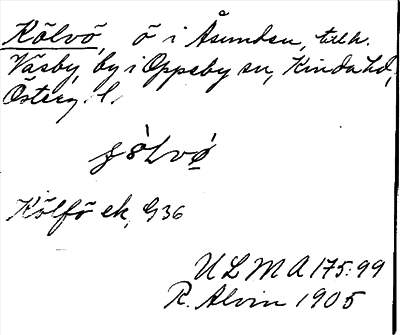 Kölvö, ö i Åsunden, tillh.
Väsby, by i Oppeby sn, Kinda hd,
Österg. l.
Kölfö ek, G36
ULMA 175:99
R. Alvin 1905